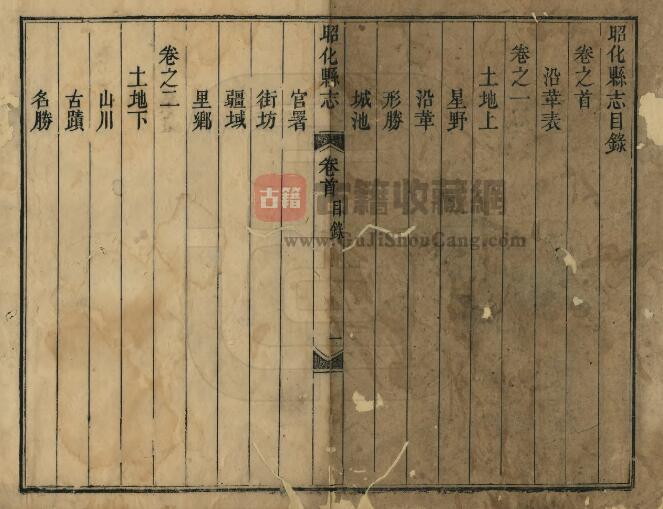 昭化縣志目錄
卷之首
沿革表
卷之一
土地上
星野
沿革
形勝
城池
昭化縣志
卷首
目錄
一
官署
街坊
疆域
里鄉
卷之二
土地下
山川
古蹟
名勝
古籍
古籍收藏網
www.GuJiShouCang.com